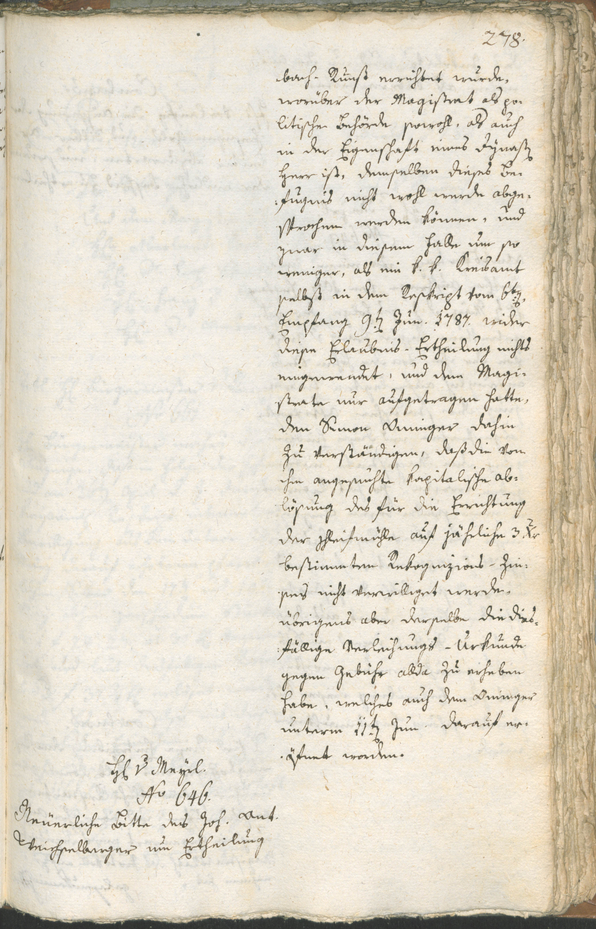 278.
bach-Runst errichtet wurde,
worüber der Magistrat als po-
litische Behörde sowohl, als auch
in der Eigenschaft eines Dynast
Herr ist, demselben dieses Be-
fugnis nicht wohl werde abge-
sprochen werden können, und
zwar in diesem Falle um so
weniger, als ein k. k. Kreisamt
selbst in dem Reskript vom 6t
Empfang 9t Jun. 1787. wider
diese Erlaubnis-Ertheilung nichts
eingewendet, und dem Magi-
strate nur aufgetragen hatte,
den Simon Oninger dahin
zu verständigen, daß die von
ihm angesuchte kapitalische ab-
lösung des für die Errichtung
der Schleifmühle auf jährliche 3 Xr
bestimmten Rekognizions-Zin-
ses nicht verwilliget werde,
übrigens aber derselbe die dies-
fällige Verleihungs-Urkunde
gegen Gebühr allda zu erheben
habe, welches auch dem Oninger
unterm 11t Jun. darauf er-
öfnet worden.
H v Mayrl.
No 646.
Neuerliche Bitte des Joh. Ant.
Weichselberger um Ertheilung